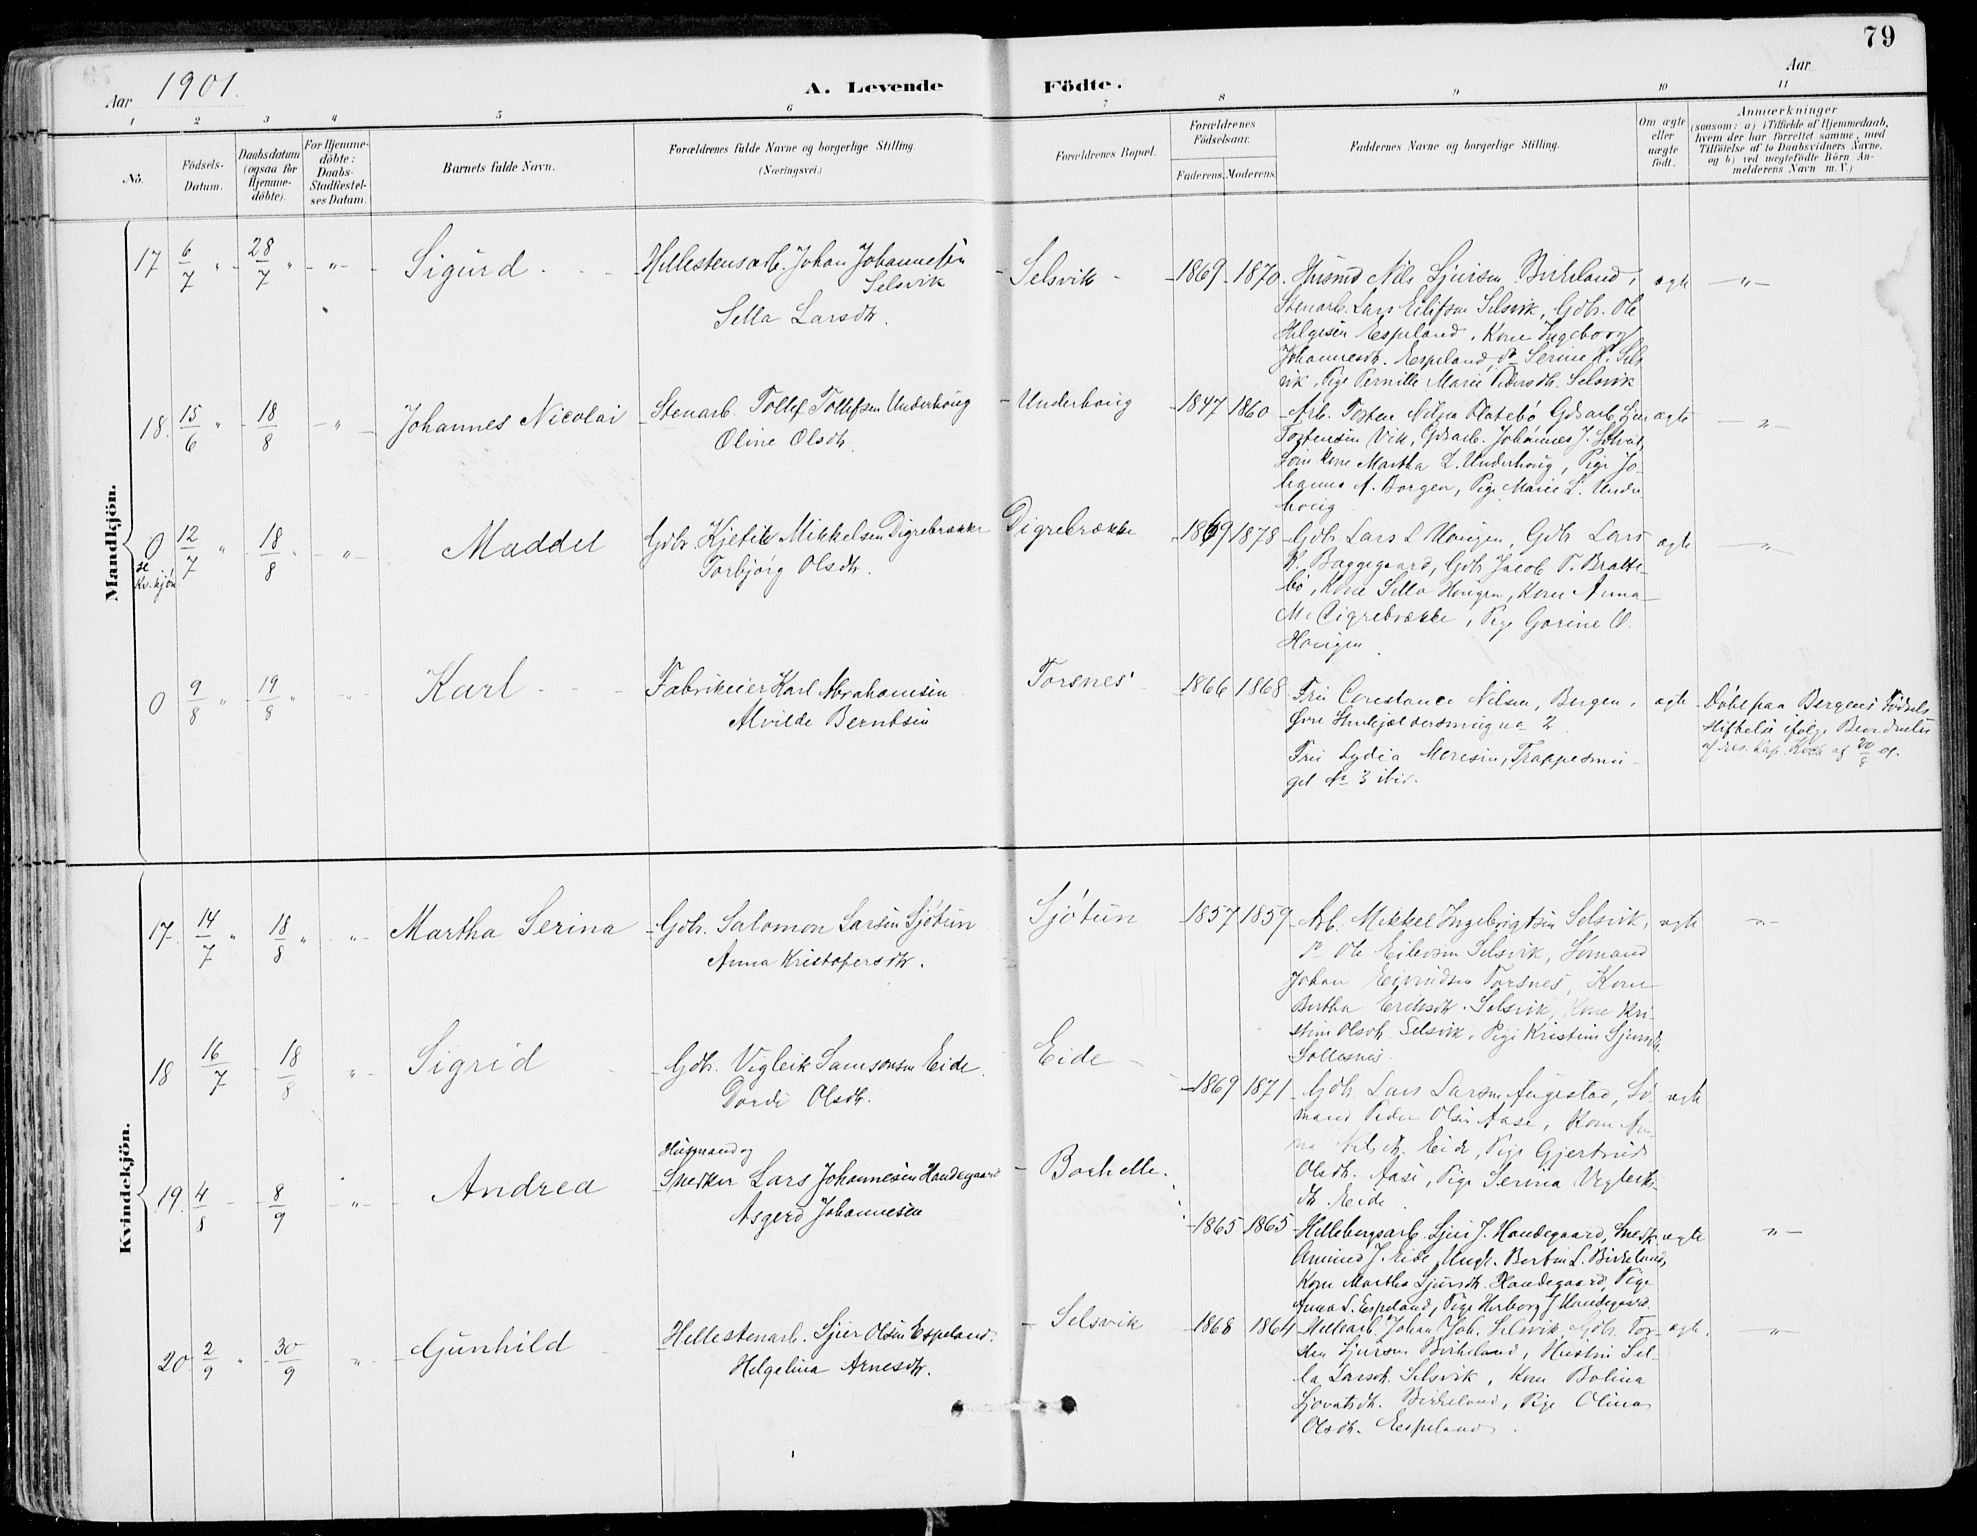 79
Aar 1901.
A. Levende Födte.
Aar
1 2 3 4 5 6 7 8 9 10 11
No.
Födsels-
Datum.
Daabsdatum
(ogsaa for
Hjemme-
döbte).
For Hjemme-
döbte:
Daabs-
Stadfæstel-
ses Datum.
Barnets fulde Navn.
Forældrenes fulde Navne og borgerlige Stilling.
(Næringsvei.)
Forældrenes Bopæl.
Forældrenes
Födselsaar.
Faderens. Moderens.
Faddernes Navne og borgerlige Stilling.
Om ægte
eller
uægte
födt.
Anmærkninger
(saasom: a) i Tilfælde af Hjemmedaab,
hvem der har forrettet samme, med
Tilföielse af to Daabsvidners Navne,
og b) ved uægtefödte Börn An-
melderens Navn m. V.)
Mandkjön.
17 6/7 " 28/7 " - " - Sigurd
Hellestensarb. Johan Johannesen
Selsvik
Sella Larsdtr.
Selsvik - 1869 - 1870
Husmd Nils Sjursen Birkeland,
Stenarb. Lars Eilifsen Selsvik, Gdbr. Ole
Helgesen Espeland, Kone Ingeborg
Johannesdtr. Espeland, Do Serine K. Sels
vik, Pige Pernille Marie Pedersdtr. Selsvik
ægte - " -
18. 15/6 " 18/8 - " - Johannes Nicolai
Stenarb. Tollef Tollefsen Underhoug
Oline Olsdtr.
Underhoug - 1847 1860
Arb. Flatebö Gdsarb. Sjur
Tostensen Vik, Gdsarb. Johannes J.
kone Martha L. Underhoug, Pige Jo-
hanna A. Borgen, Pige Marie L. Under
houg
ægte - " -
0 12/7 " 18/8 " - " - Maddel
se
Kv.kjön
Gdbr. Kjetil Mikkelsen Digrebrække
Torbjörg Olsdtr.
Digrebrække - 1869 1878
Gdbr. Lars L Hougen, Gdbr Lars
K. Baggegaard, Gdbr Jacob T. Bratte-
bö, Kone Sella Hougen, Kone Anna
M. Digrebrække, Pige Gorine O.
Hougen.
ægte - " -
0 9/8 " 19/8 " - " - Karl
Fabrikeier Karl Abrahamsen
Alvilde Berntsen
Torsnes - 1866 1868
Fru Constance Nilsen, Bergen,
Övre 2
Fru Lydia Moresen, Trappesmu-
get No 3 ibid.
ægte
Döbt paa Bergens Födsels
Stiftelse ifölge
af res. Kap. Koch af 20/8 01.
Kvindekjön.
17. 14/7 " 18/8 " " - Martha Serina
Gdbr. Salomon Larsen Sjötun
Anna Kristofersdtr.
Sjötun 1857 1859
Arb. Mikkel Ingebrigtsen Selsvik,
Do Ole Eilevsen Selsvik, Sömand
Johan Eivindsen Torsnes, Kone
Bertha Eriksdtr. Selsvik, Kone Kri-
stine Olsdtr. Selsvik, Pige Kristine Sjursdtr.
Sollesnes
ægte - " -
18 16/7 - 18/8 " - Sigrid
Gdbr. Vigleik Samsonsen Eide.
Dordi Olsdtr.
Eide - 1869 1871
Gdbr. Lars Larsen Augestad, Sö
mand Peder Olsen Aase, Kone An-
na Eide, Pige Gjertrud
Olsdtr. Aase, Pige Serina Vigleiks-
dtr Eide.
ægte
19. 4/8 - 8/9 - " - Andrea
Husmand og
Snedker Lars Johannesen Handegaard
Asgerd Johannesen
- 1865 1865
Hellebergsarb. Sjur J. Handegaard, Snedk.
Amund J. Eide, Ungk. Bertin L. Birkeland,
Kone Martha Sjursdtr. Handegaard, Pige
Anna S. Espeland, Pige Herborg J Handegaard.
ægte " -
20 2/9 " - 30/9 " - Gunhild
Hellestenarb. Sjur Olsen Espeland.
Helgelina Arnesdtr.
Selsvik - 1868 1864
Hellearb. Johan Joh. Selsvik, Gdbr. Tor-
sten Sjursen Birkeland, Hustru Sel-
la Larsdtr. Selsvik, Kone Bolina
Sjovatsdtr. Birkeland, Pige Olina
Olsdtr. Espeland.
ægte. - " -